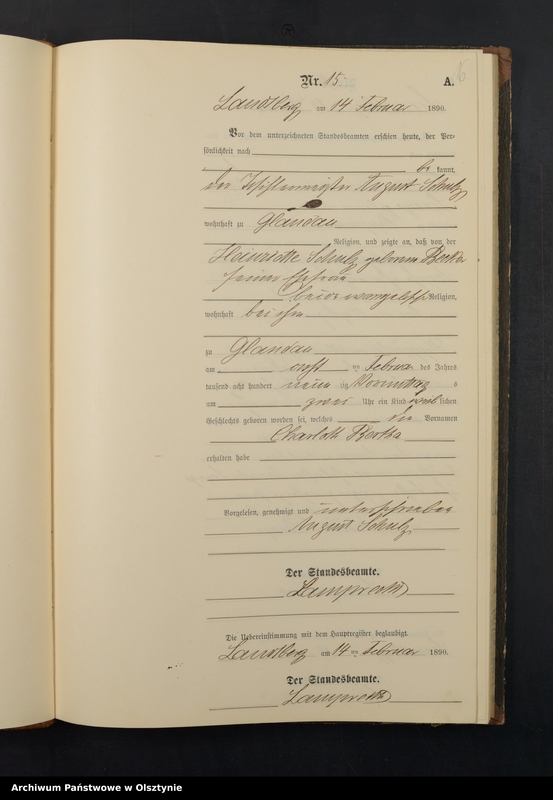 Nr. 15. A.
Landsberg am 14 Februar 1890.
Vor dem unterzeichneten Standesbeamten erschien heute, der Per-
sönlichkeit nach
be kannt,
der August Schulz
wohnhaft zu Glandau
Religion, und zeigte an, daß von der
Henriette Schulz geborene
seiner Ehefrau
beide evangelisch Religion,
wohnhaft bei ihm
zu Glandau
am ten Februar des Jahres
tausend acht hundert neun zig Vormittag s
um zwei Uhr ein Kind weib lichen
Geschlechts geboren worden sei, welches die Vornamen
Bertha
erhalten habe
Vorgelesen, genehmigt und unterschrieben
August Schulz
Der Standesbeamte.
Lamprecht
Die Uebereinstimmung mit dem Hauptregister beglaubigt.
Landsberg am 14 ten Februar 1890.
Der Standesbeamte.
Lamprecht
Archiwum Państwowe w Olsztynie